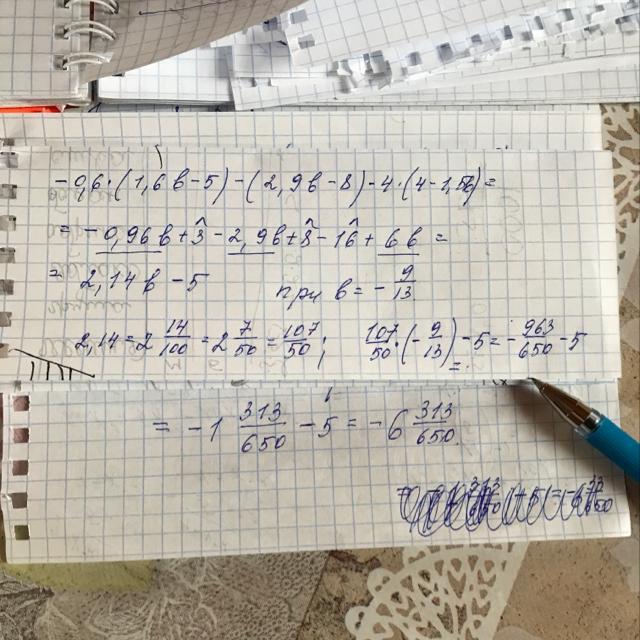 -0,6·(1,6в-5)-(2,9в-8)-4·(4-1,5в)=
=-0,96в+3-2,9в+8-16+6в=
= 2,14в-5 при в=-9/13
2,14=2 14/100=2 7/50=107/50; 107/50·(-9/13)-5=-963/650-5
=
= -1 313/650 -5= -6 313/650.